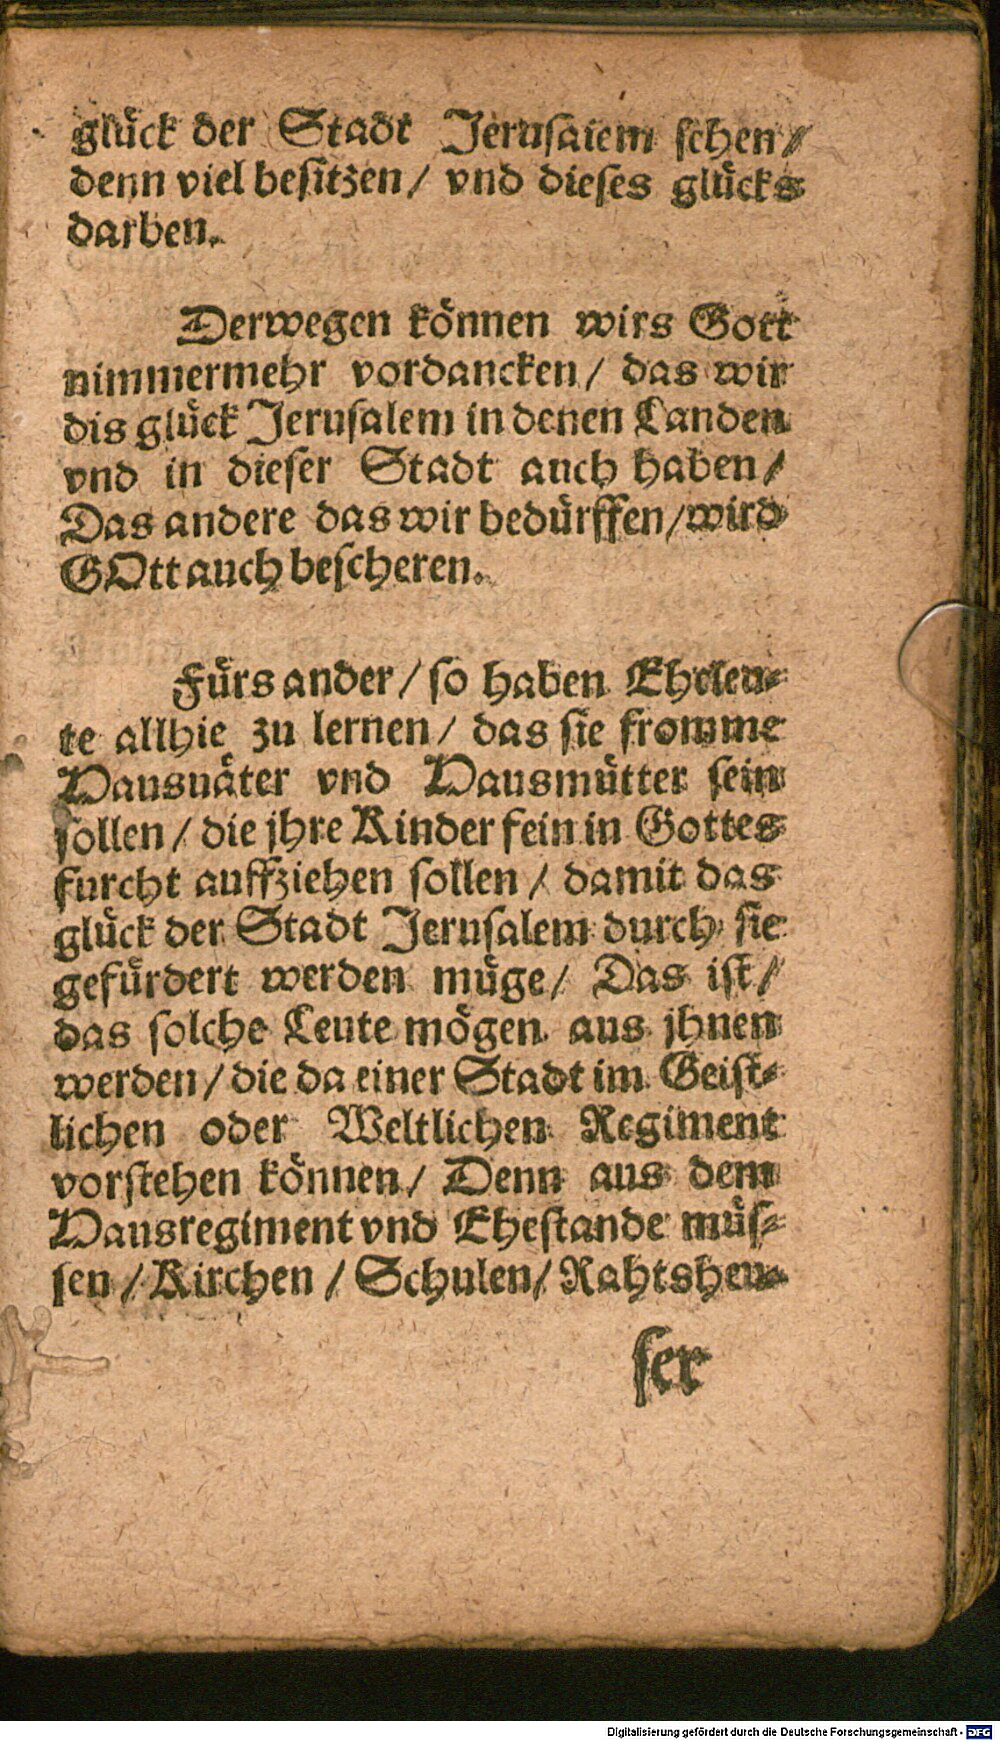 glück der Stadt Jerusalem sehen/
denn viel besitzen/ vnd dieses glücks
darben.
Derwegen können wirs Gott
nimmermehr vordancken/ das wir
dis glück Jerusalem in denen Landen
vnd in dieser Stadt auch haben/
Das andere das wir bedürffen/ wird
GOtt auch bescheren.
Fürs ander/ so haben Eheleu-
te allhie zu lernen/ das sie fromme
Hausuäter vnd Hausmütter sein
sollen/ die jhre Kinder fein in Gottes
furcht auffziehen sollen/ damit das
glück der Stadt Jerusalem durch sie
gefürdert werden müge/ Das ist/
das solche Leute mögen aus jhnen
werden/ die da einer Stadt im Geist-
lichen oder Weltlichen Regiment
vorstehen können/ Denn aus dem
Hausregiment vnd Ehestande müs-
sen/ Kirchen/ Schulen/ Rahtsheu-
ser
Digitalisierung gefördert durch die Deutsche Forschungsgemeinschaft - DFG